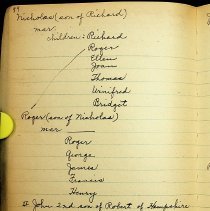 Nicholas (son of Richard)
mar.
children: Richard
Roger
Ellen
Joan
Thomas
Winifred
Bridget
Roger (son of Nicholas)
mar
Roger
George
James
Francis
Henry
II John 2nd son of Robert of Hampshire